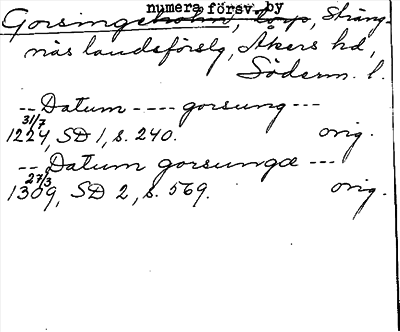 numera försv. by
Gorsingeholm, torp, Sträng-
näs landsförslg, Åkers hd,
Söderm. l.
--- Datum ---- gorsung ---
31/7
1224, SD 1, s. 240. orig.
--- Datum gorsungæ ---
27/3
1309, SD 2, s. 569. orig.